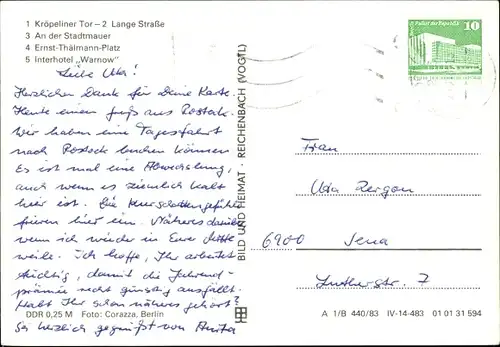 1 Kröpeliner Tor – 2 Lange Straße
3 An der Stadtmauer
4 Ernst-Thälmann-Platz
5 Interhotel „Warnow“
Liebe Uta!
Herzlichen Dank für Deine Karte.
Heute einen Gruß aus Rostock.
Wir haben eine Tagesfahrt
nach Rostock buchen können
Es ist mal eine Abwechslung,
auch wenn es ziemlich kalt
hier ist. Die
frieren hier ein. Näheres darüber
wenn ich wieder in Eure Mitte
weile. Ich hoffe, Ihr arbeitet
tüchtig, damit die Jahresend-
prämie nicht günstig ausfällt.
Habt Ihr schon näheres gehört?
Sei herzlich gegrüßt von Anita
DDR 0,25 M Foto: Corazza, Berlin
BILD UND HEIMAT · REICHENBACH (VOGTL)
Palast der Republik
10
Frau
Uta
6900 Jena
Lutherstr. 7
A 1/B 440/83 IV-14-483 01 01 31 594